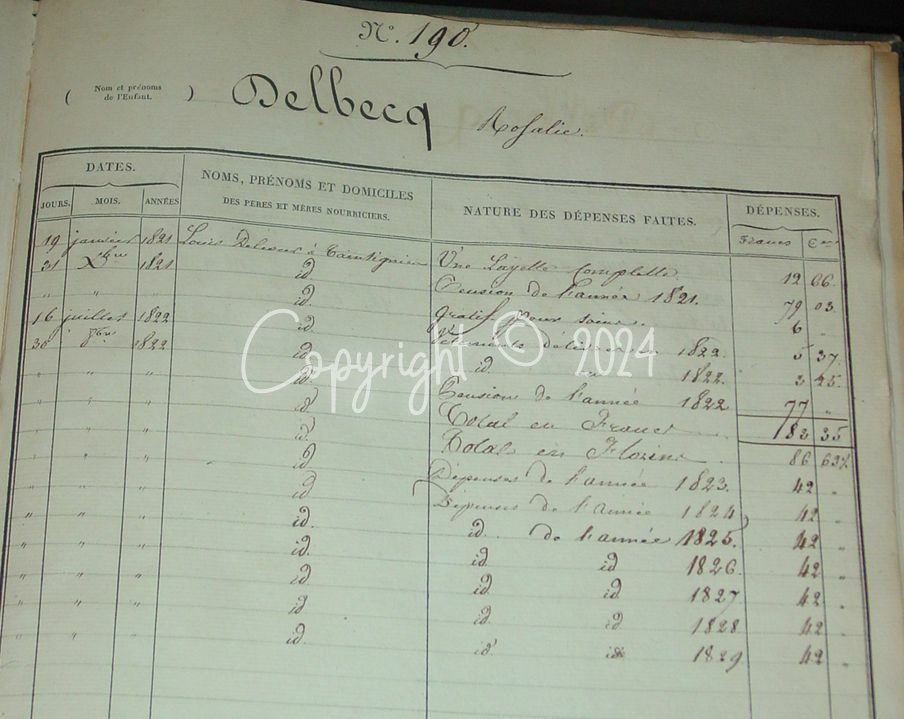 N.º 190.
( Nom et prénoms de l'Enfant. ) Delbecq Rosalie.
DATES. NOMS, PRÉNOMS ET DOMICILES DES PÈRES ET MÈRES NOURRICIERS. NATURE DES DÉPENSES FAITES. DÉPENSES.
JOURS. MOIS. ANNÉES Francs Cmes
19 janvier 1821 Louis à Taintignies Une Layette complette 12 66.
31 Xbre 1821 id. Pension de l'année 1821. 79 03
" " id. gratif. pour soins. 6 "
16 juillet 1822 id. Vêtements 1822. 5 37.
30 1822 id. id. " 1822. 3 25.
" " " id. Pension de l'année 1822 77 "
" " " id. Total en Francs 183 35
" " " id. Total en Florins 86 63½
" " " id. Dépenses de l'année 1823. 42 "
" " " id. Dépenses de l'année 1824 42 "
" " " id. id. de l'année 1825. 42 "
" " " id. id. id. 1826. 42 "
" " " id. id. id. 1827. 42 "
" " " id. id. id. 1828 42 "
" " " id. id. id. 1829 42 "
Copyright © 2024